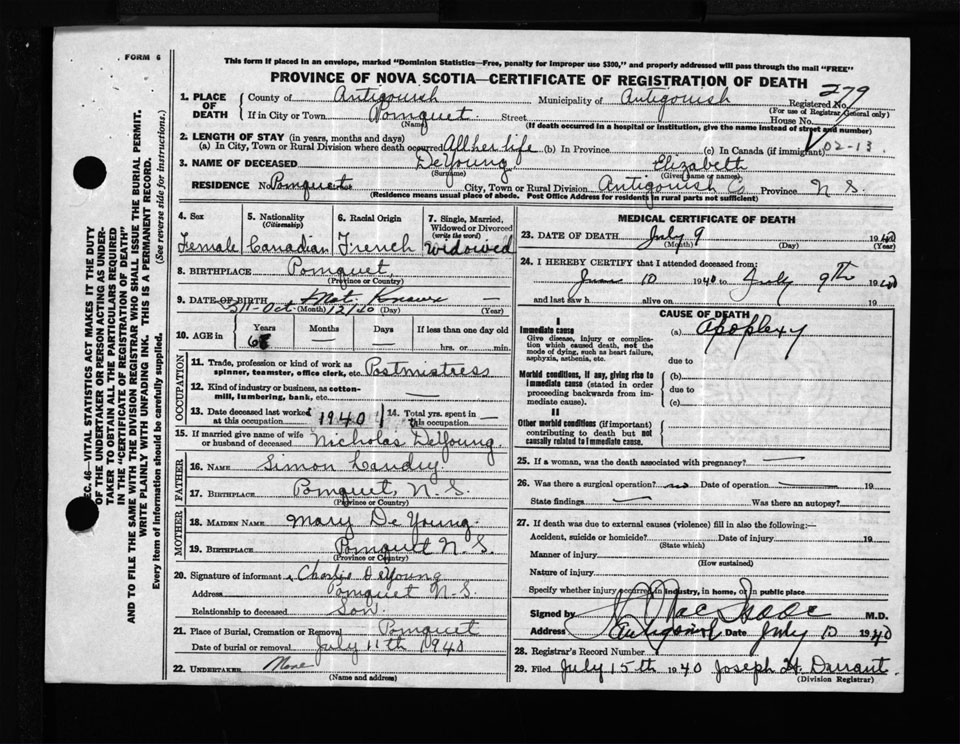 FORM 6
This form if placed in an envelope, marked "Dominion Statistics—Free, penalty for improper use $300," and properly addressed will pass through the mail "FREE"
PROVINCE OF NOVA SCOTIA—CERTIFICATE OF REGISTRATION OF DEATH
279
1. PLACE OF DEATH
County of Antigonish Municipality of Antigonish Registered No.
(For use of Registrar General only)
If in City or Town Pomquet Street House No.
(Name) (If death occurred in a hospital or institution, give the name instead of street and number)
2. LENGTH OF STAY (in years, months and days)
(a) In City, Town or Rural Division where death occurred All her life (b) In Province (c) In Canada (if immigrant) 02-13.
3. NAME OF DECEASED DeYoung Elizabeth
(Surname) (Given name or names)
RESIDENCE No. Pomquet City, Town or Rural Division Antigonish Co Province N S.
(Residence means usual place of abode. Post Office Address for residents in rural parts not sufficient)
4. Sex Female
5. Nationality (Citizenship) Canadian
6. Racial Origin French
7. Single, Married, Widowed or Divorced (write the word) Widowed
8. BIRTHPLACE Pomquet,
(Province or Country)
9. DATE OF BIRTH Not Known —
(Month) (Day) (Year)
10. AGE in Years Months — Days — If less than one day old
hrs. or min.
OCCUPATION
11. Trade, profession or kind of work as spinner, teamster, office clerk, etc. Postmistress
12. Kind of industry or business, as cotton-mill, lumbering, bank, etc. —
13. Date deceased last worked at this occupation 1940
14. Total yrs. spent in this occupation —
15. If married give name of wife or husband of deceased Nicholas DeYoung.
FATHER
16. NAME Simon Landry.
17. BIRTHPLACE Pomquet, N. S.
(Province or Country)
MOTHER
18. MAIDEN NAME Mary De Young.
19. BIRTHPLACE Pomquet N. S.
(Province or Country)
20. Signature of informant Charlie DeYoung
Address Pomquet N-S.
Relationship to deceased Son.
21. Place of Burial, Cremation or Removal Pomquet
Date of burial or removal July 11th 1940
22. UNDERTAKER None
(Name and address)
MEDICAL CERTIFICATE OF DEATH
23. DATE OF DEATH July 9 1940
(Month) (Day) (Year)
24. I HEREBY CERTIFY that I attended deceased from:
June 10 1940 to July 9th 1940
and last saw h alive on 19
CAUSE OF DEATH
I
Immediate cause (a) Apoplexy
Give disease, injury or complication which caused death, not the mode of dying, such as heart failure, asphyxia, asthenia, etc.
due to
Morbid conditions, if any, giving rise to immediate cause (stated in order proceeding backwards from immediate cause).
(b)
due to
(c)
II
Other morbid conditions (if important) contributing to death but not causally related to immediate cause.
25. If a woman, was the death associated with pregnancy? —
26. Was there a surgical operation? no Date of operation 19
State findings — Was there an autopsy?
27. If death was due to external causes (violence) fill in also the following:—
Accident, suicide or homicide? Date of injury 19
(State which)
Manner of injury
(How sustained)
Nature of injury
Specify whether injury occurred in industry, in home, or in public place
Signed by MacIsaac M.D.
Address Antigonish Date July 10 1940
28. Registrar's Record Number
29. Filed July 15th 1940 Joseph H. Durrant
(Division Registrar)
SEC. 46—VITAL STATISTICS ACT MAKES IT THE DUTY OF THE UNDERTAKER OR PERSON ACTING AS UNDERTAKER TO OBTAIN ALL THE PARTICULARS REQUIRED IN THE "CERTIFICATE OF REGISTRATION OF DEATH"
AND TO FILE THE SAME WITH THE DIVISION REGISTRAR WHO SHALL ISSUE THE BURIAL PERMIT.
WRITE PLAINLY WITH UNFADING INK. THIS IS A PERMANENT RECORD.
Every item of information should be carefully supplied. (See reverse side for instructions.)